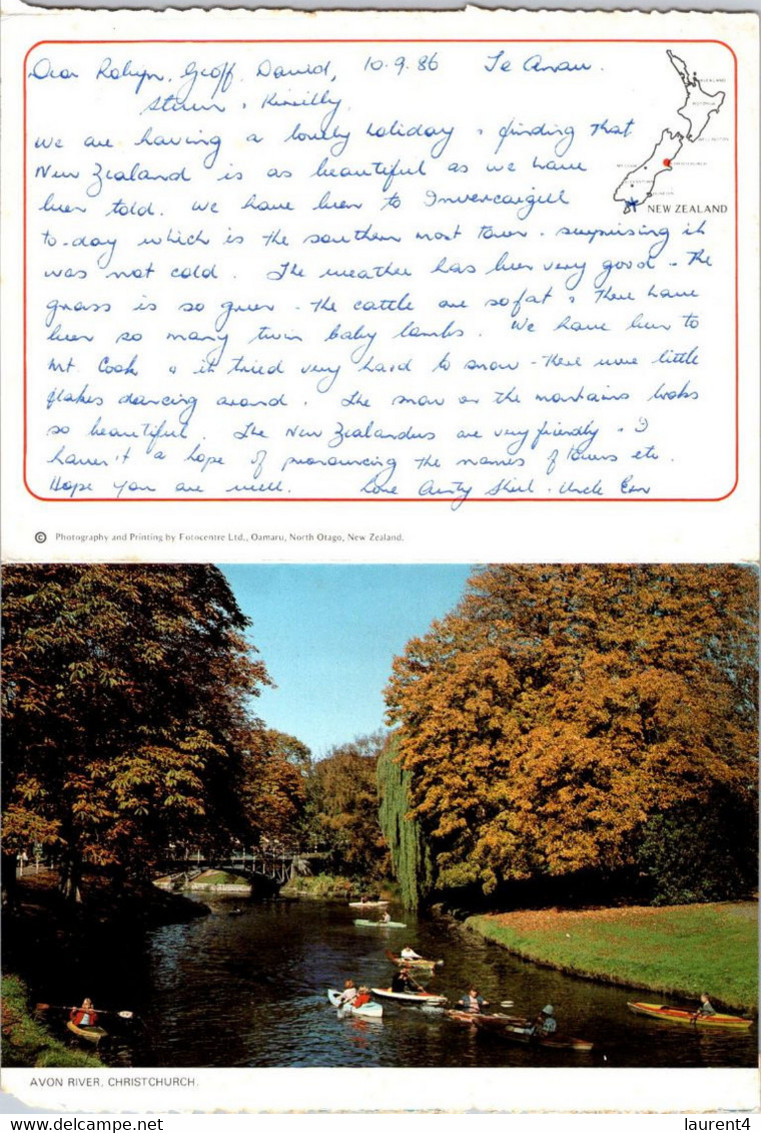 Dear Robyn, Geoff, David, 10.9.86 Te Anau.
Steven & 
We are having a lovely holiday & finding that
New Zealand is as beautiful as we have
been told. We have been to Invercargill
to-day which is the southern most town - surprising it
was not cold. The weather has been very good - the
grass is so green - the cattle are so fat & there have
been so many twin baby lambs. We have been to
Mt. Cook & it tried very hard to snow - there were little
flakes dancing around. The snow on the mountains looks
so beautiful. The New Zealanders are very friendly - I
haven't a hope of pronouncing the names of towns etc.
Hope you are well. Love Aunty & Uncle
NEW ZEALAND
© Photography and Printing by Fotocentre Ltd., Oamaru, North Otago, New Zealand.
AVON RIVER, CHRISTCHURCH.
laurent4